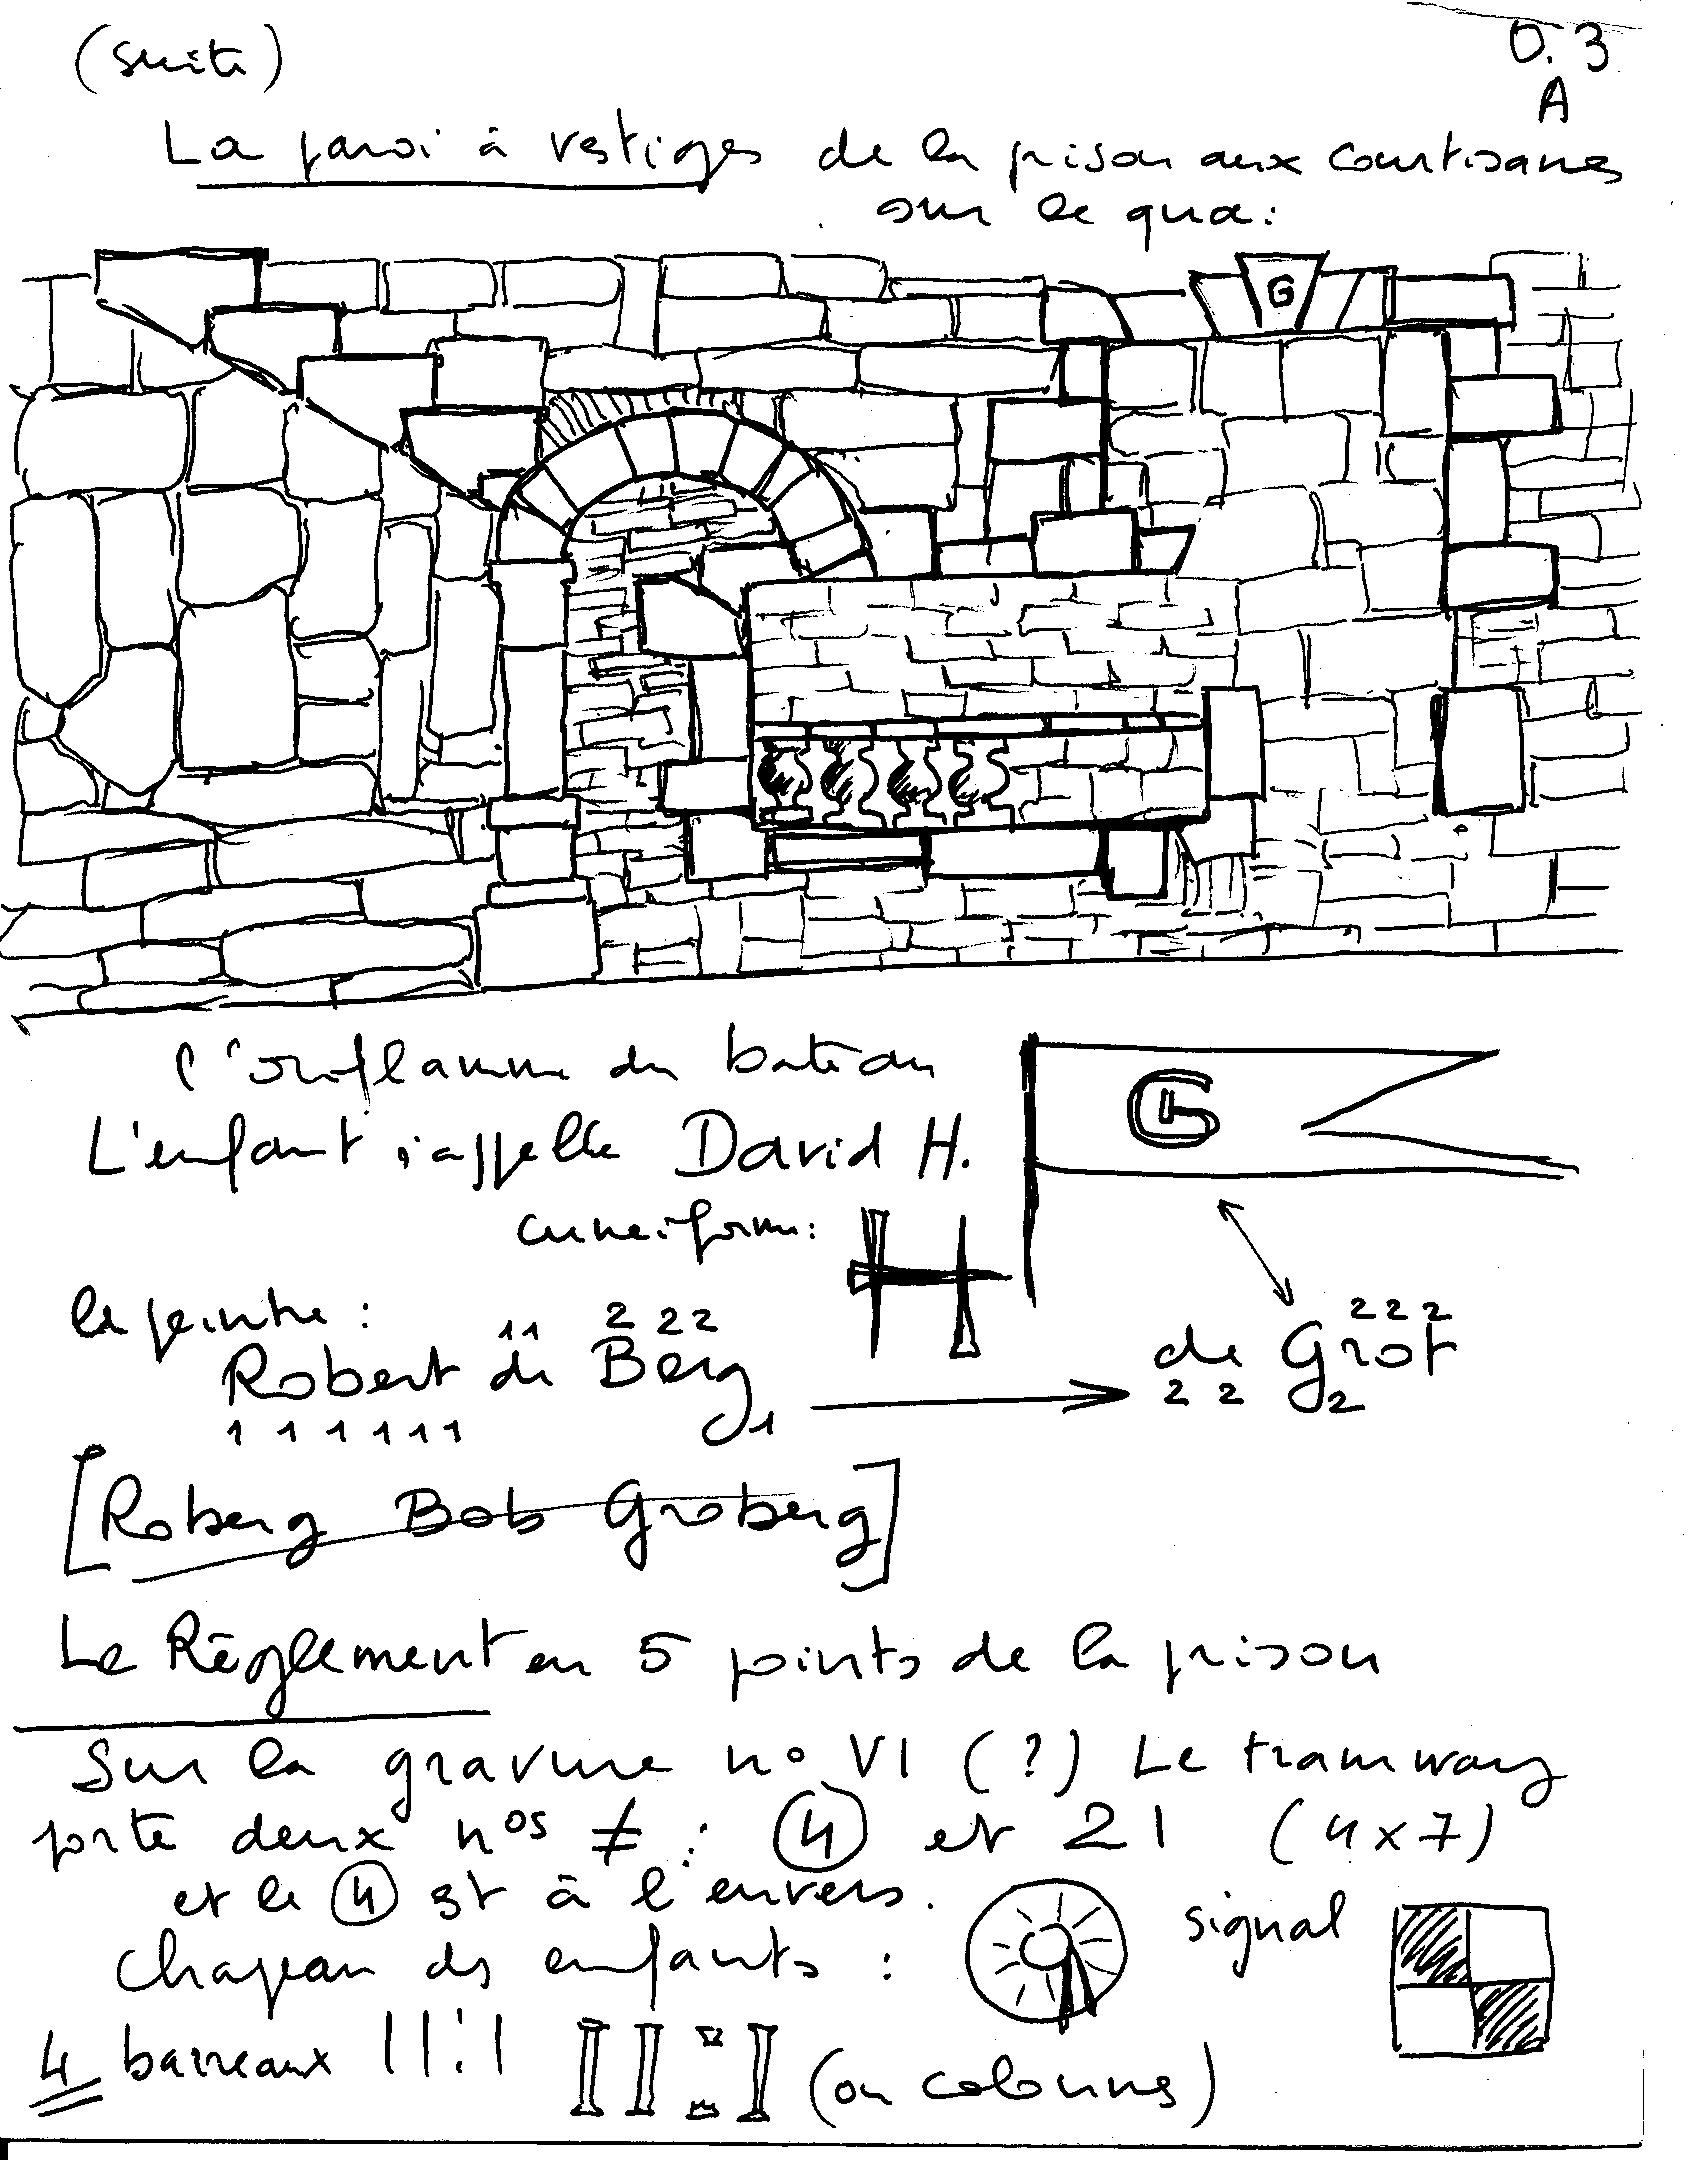 (suite)
O.3
A
La paroi à vestiges de la prison aux courtisanes
sur le quai :
G
l'oriflamme du bateau
G
L'enfant s'appelle David H.
cunéiforme : H
le peintre :
11 222
Robert de Berg
111111 1
222
de Grot
22 2
[Roberg Bob Groberg]
Le Règlement en 5 points de la prison
Sur la gravure n° VI (?) Le tramway
porte deux nos ≠ : 4 et 21 (4 x 7)
et le 4 est à l'envers.
chapeau des enfants : signal
4 barreaux (ou colonnes)